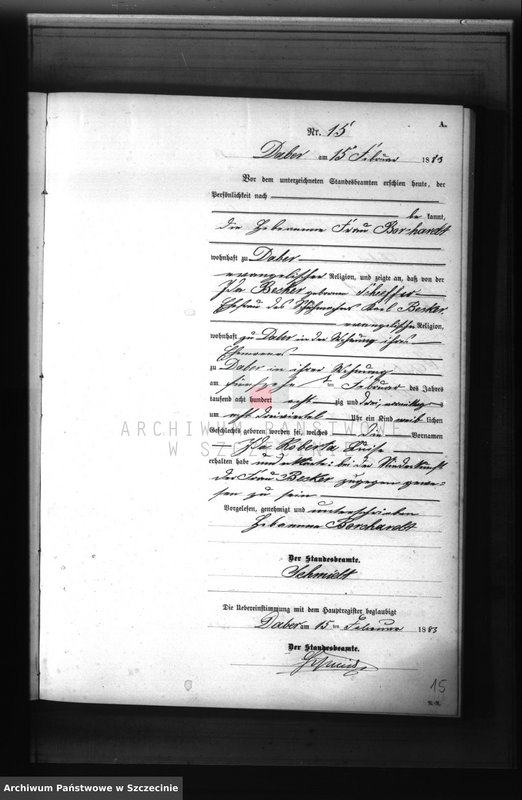 A.
Nr. 15
Daber am 15 Februar 1883
Vor dem unterzeichneten Standesbeamten erschien heute, der
Persönlichkeit nach
be kannt,
die Hebamme Frau Borchardt
wohnhaft zu Daber
evangelischer Religion, und zeigte an, daß von der
Ida Besker geborene
Ehefrau des Karl Besker
evangelischer Religion,
wohnhaft zu Daber in der Wohnung ihres
Ehemannes
zu Daber in ihrer Wohnung
am ten Februar des Jahres
tausend acht hundert acht zig und drei, Vormittags
um acht dreiviertel Uhr ein Kind weib lichen
Geschlechts geboren worden sei, welches die Vornamen
Ida Roberta Luise
erhalten habe und erklärte: bei der Niederkunft
der Frau Besker zugegen gewe-
sen zu sein
Vorgelesen, genehmigt und unterschrieben
Hebamme Borchardt
Der Standesbeamte.
Schmidt
Die Uebereinstimmung mit dem Hauptregister beglaubigt
Daber am 15 ten Februar 1883
Der Standesbeamte.
Schmidt
15
ARCHIWUM PAŃSTWOWE
W SZCZECINIE
Archiwum Państwowe w Szczecinie